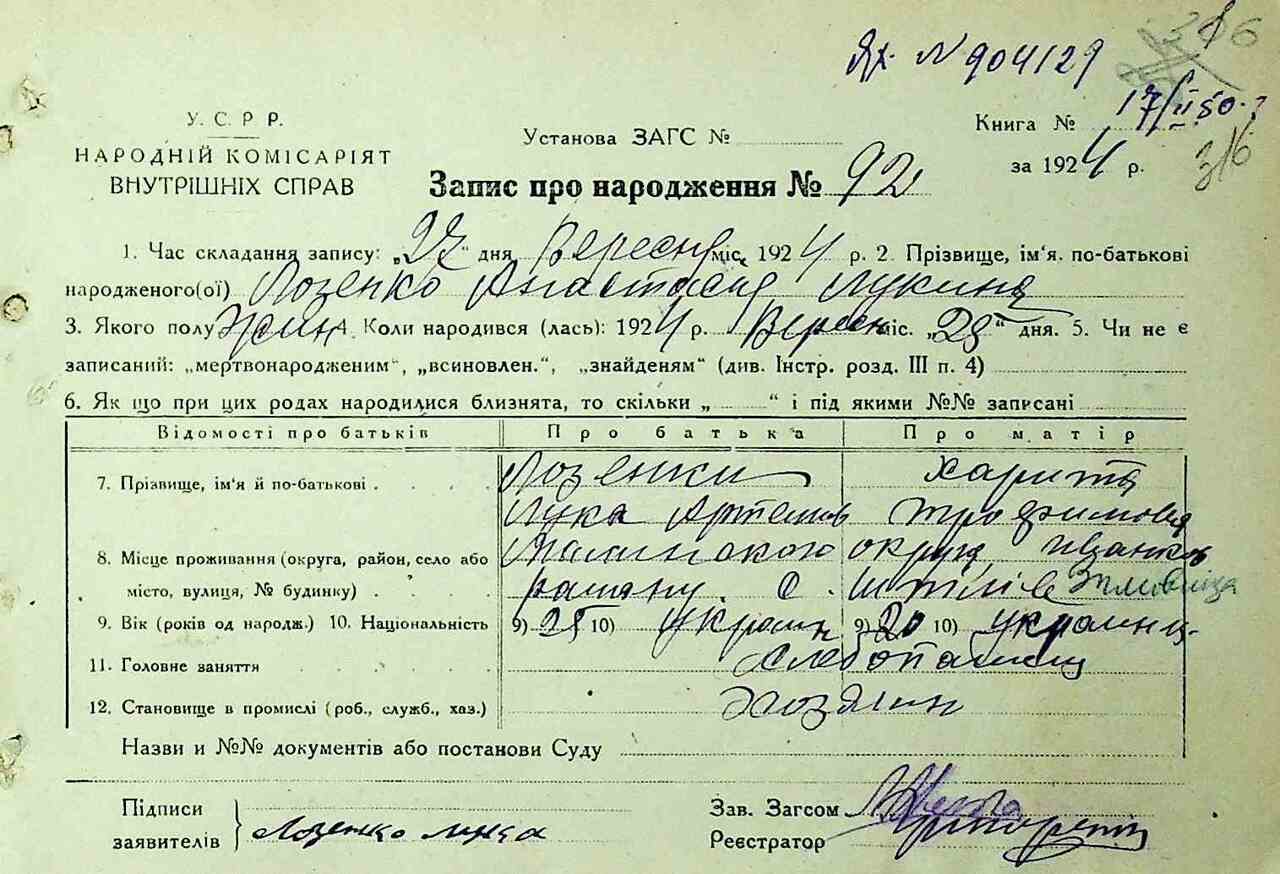 ЯХ N 904129
17/II 50 г
316
У. С. Р Р.
НАРОДНІЙ КОМІСАРІЯТ
ВНУТРІШНІХ СПРАВ
Установа ЗАГС №
Книга №
за 1924 р.
Запис про народження № 92
1. Час складання запису: „27" дня Вересня міс. 1924 р. 2. Прізвище, ім'я. по-батькові
народженого(ої) Лозенко Анастасия Лукина
3. Якого полу Жин 4. Коли народився (лась): 1924 р. Вересн міс. „23" дня. 5. Чи не є
записаний: „мертвонародженим", „всиновлен.", „знайденям" (див. Інстр. розд. III п. 4)
6. Як що при цих родах народилися близнята, то скільки „ " і під якими №№ записані
Відомості про батьків Про батька Про матір
7. Прізвище, ім'я й по-батькові Лозенки Харита
Лука Артемов Трофимовна
8. Місце проживання (округа, район, село або Малинскою округи
місто, вулиця, № будинку) району. С.
9. Вік (років од народж.) 10. Національність 9) 25 10) Украин 9) 20 10) Украинц
11. Головне заняття Хлебопашец
12. Становище в промислі (роб., служб., хаз.) Хозяин
Назви и №№ документів або постанови Суду
Підписи
заявителів
Лозенко Лука
Зав. Загсом
Реєстратор